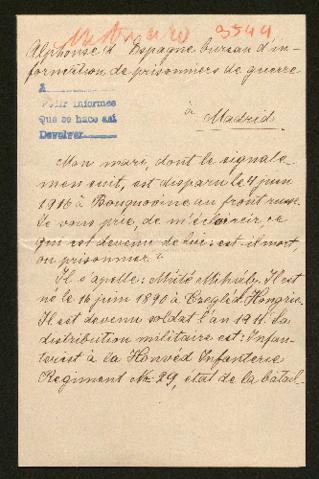 3549
Alphonse d' Espagne bureau d'in-
formation de prisonniers de guerre
A
Pedir informes
Que se hace así
Devolver
à
Madrid.
Mon mari, dont le signale-
men suit, est disparu le 4 juin
1916 à Bouquovine au front russe.
Je vous prie, de m'éclaircir, ce
qui est devenu de lui: est il mort
ou prisonnier?
Il s'apelle: Máté Mihály. Il est
né le 16 juin 1890 à Czegléd, Hongrie.
Il est devenu soldat l'an 1911. Sa
distribution militaire est: Infan-
terist à la Honvéd Infanterie
Regiment No 29, état de la batail-